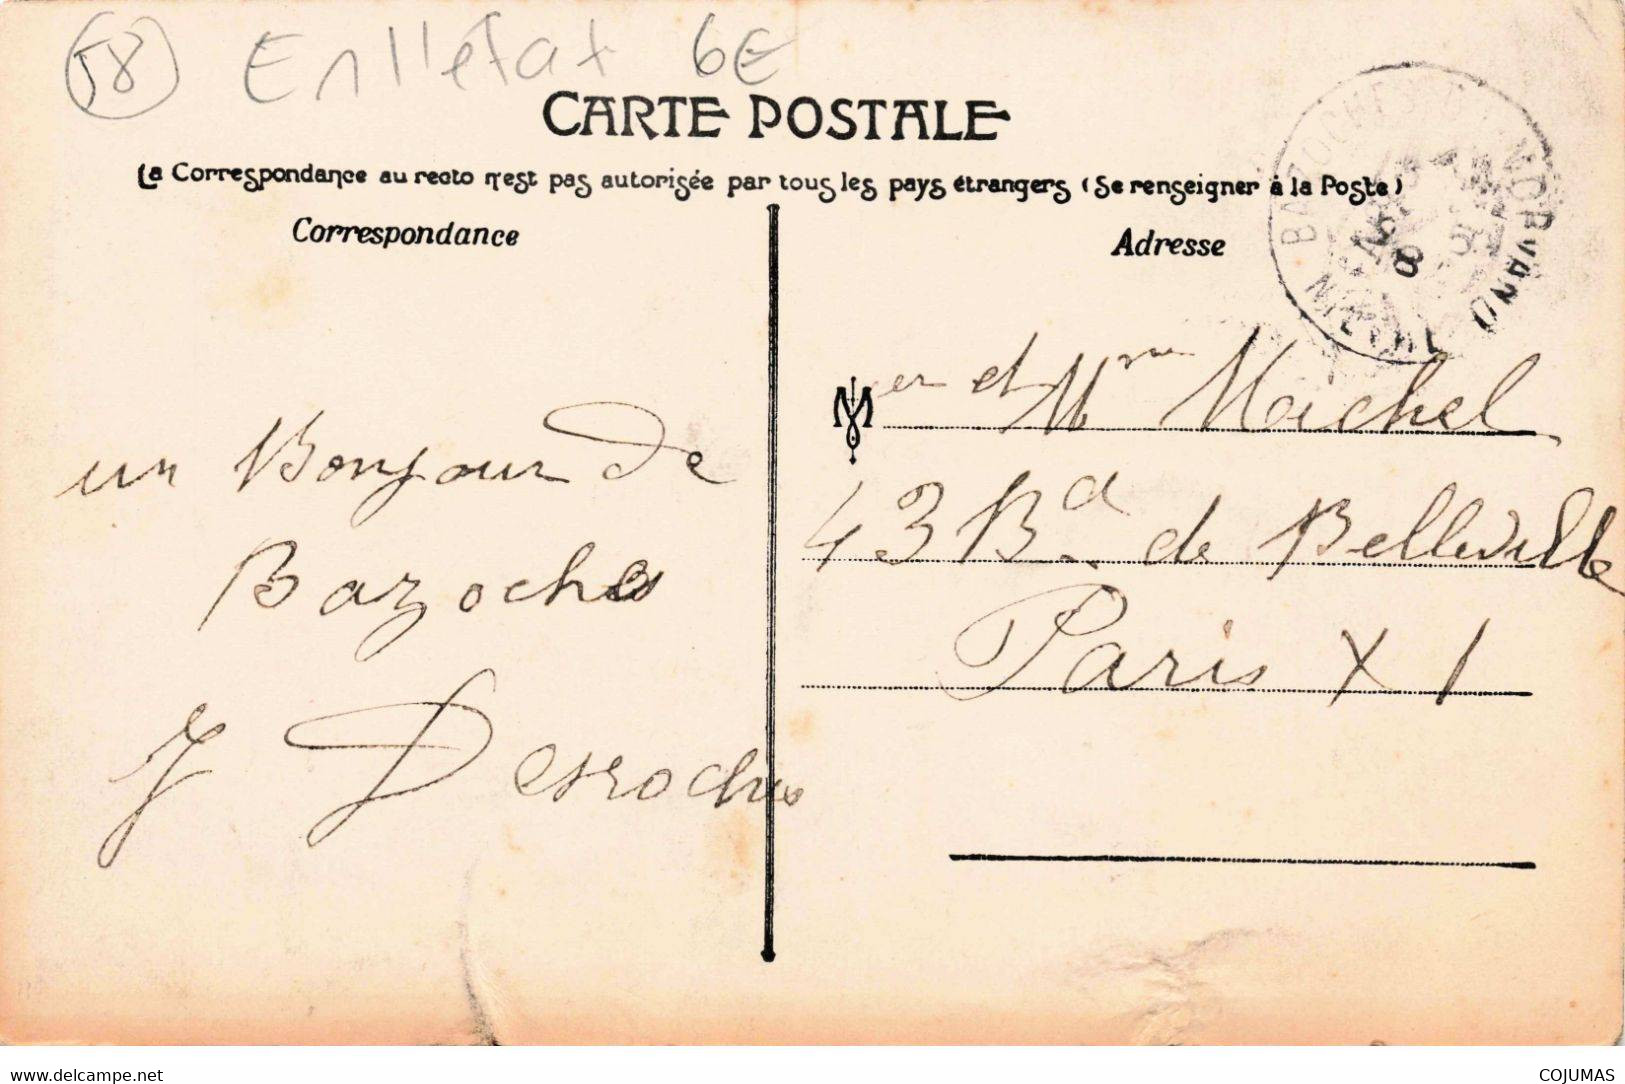 58 En l'état 6E
CARTE POSTALE
La Correspondance au recto n'est pas autorisée par tous les pays étrangers (Se renseigner à la Poste)
Correspondance
Adresse
BAZOCHES DU MORVAND
28
un Bonjour de
Bazoches
J Desroches
M er et Mme Maichel
43 Bd. de Belleville
Paris XI
delcampe.net
COJUMAS